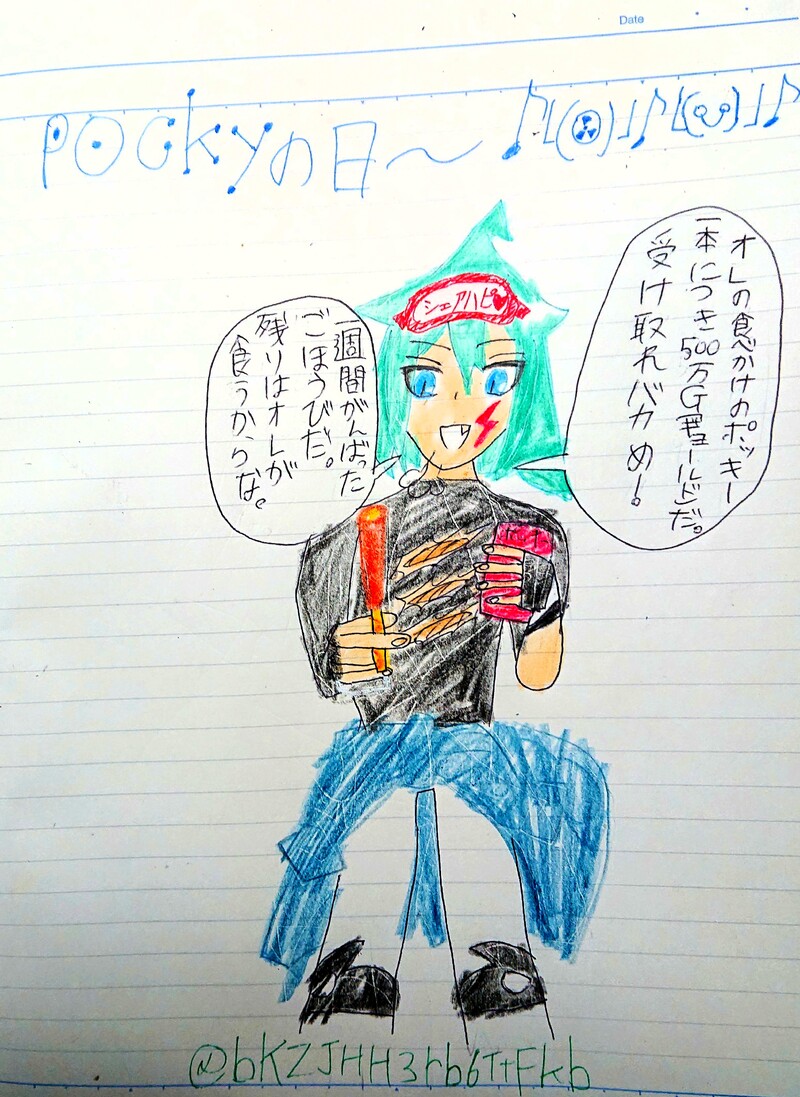 Date
Pockyの日〜
オレの食べかけのポッキー
一本につき500万G
受け取れバカめー。
シェアハピ
一週間がんばった
ごほうびだ。
残りはオレが
食うからな。
@bKZJHH3rb6TtFkb